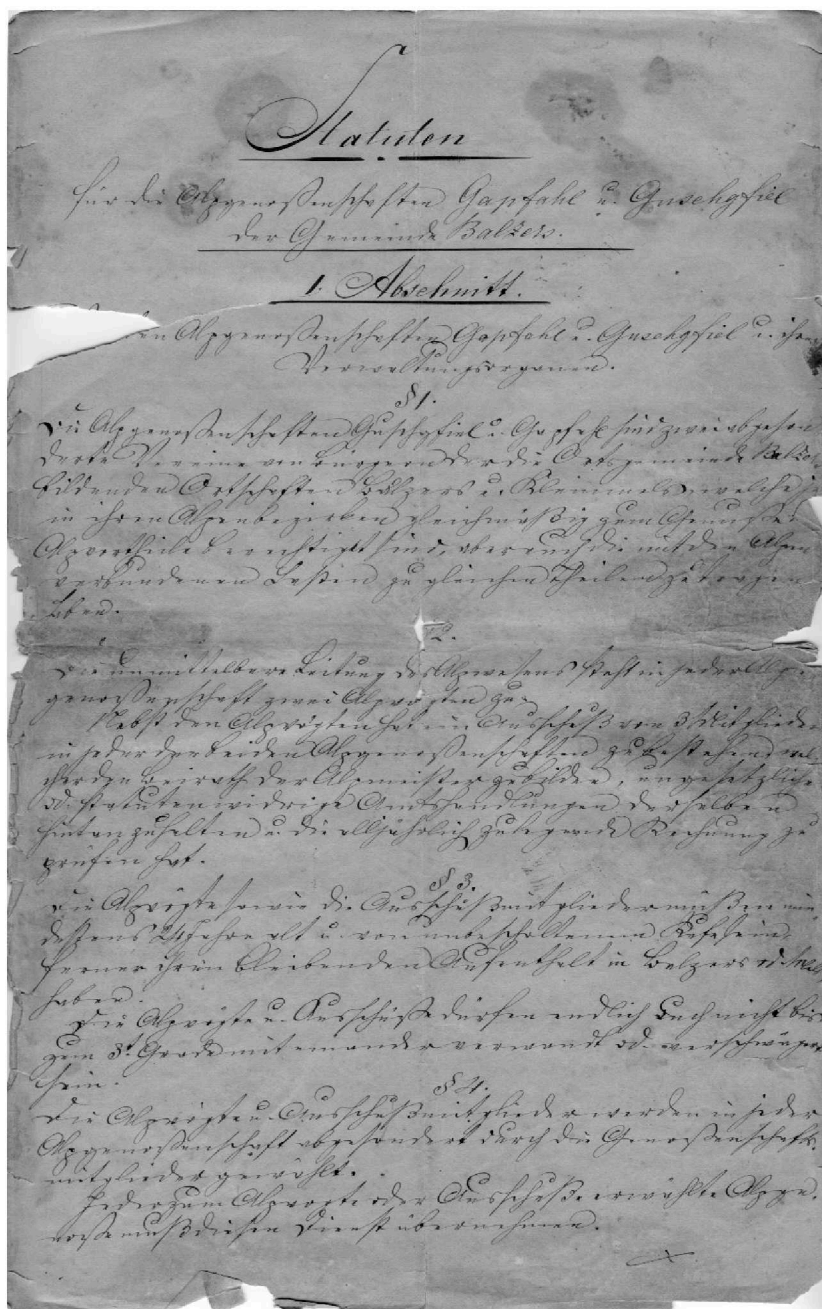 Statuten
für die Alpgenoßenschaften Gapfahl u. Guschgfiel
der Gemeinde Balzers.
1. Abschnitt.
den Alpgenoßenschaften Gapfahl u. Guschgfiel u. ihren
Verwaltungsorganen.
§ 1.
Die Alpgenoßenschaften Guschgfiel u. Gapfahl sind zwei abgeson
derte Vereine von Bürgern der die Ortsgemeinde Balzers
bildenden Ortschaften Balzers u. Kleinmels, welche
in ihren Alpenbezirken gleichmäßig zum Genuße der
Alpvortheile berechtigt sind, aber auch die mit den Alpen
verbundenen Lasten zu gleichen Theilen zu tragen
haben.
2.
Die unmittelbare Leitung des Alpwesens steht in jeder Alp
genoßenschaft zwei Alpvögten zu.
Nebst den Alpvögten hat ein Ausschuß von 3 Mitglieder
in jeder der beiden Alpgenoßenschaften zu bestehen, wel
cher den Beirath der Alpmeister zu bilden, ungesetzliche
od. statutenwidrige Amtshandlungen derselben
hintanzuhalten u. die alljährlich zulegende Rechnung zu
prüfen hat.
§ 3.
Die Alpvögte sowie die Ausschußmitglieder müßen min
destens 24 Jahre alt u. von unbescholtenem Rufe sein,
ferner ihren bleibenden Aufenthalt in Balzers od. Mels
haben.
Die Alpvögte u. Ausschüße dürfen endlich auch nicht bis
zum 3t. Grade mit einander verwandt od. verschwägert
sein.
§ 4.
Die Alpvögte u. Ausschußmitglieder werden in jeder
Alpgenoßenschaft abgesondert durch die Genoßenschafts
mitglieder gewählt.
Jeder zum Alpvogte oder Ausschuße erwählte Alpge
noße muß diesen Dienst übernehmen.